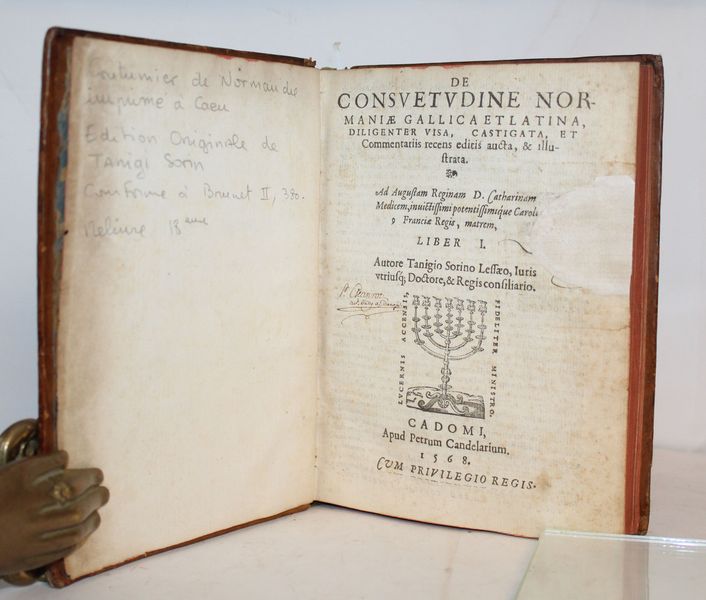 Coutumier de Normandie
imprimé à Caen
Edition Originale de
Tanigi Sorin
Conforme à Brunet II, 380.
Reliure 18ème
DE
CONSVETVDINE NOR-
MANIÆ GALLICA ET LATINA,
DILIGENTER VISA, CASTIGATA, ET
Commentariis recens editis aucta, & illu-
strata.
Ad Augustam Reginam D. Catharinam
Medicem, invictissimi potentissimique Caroli
9 Franciæ Regis, matrem,
LIBER I.
Autore Tanigio Sorino Lessæo, Iuris
vtriusq; Doctore, & Regis consiliario.
LVCERNIS ACCENSIS,
FIDELITER MINISTRO.
CADOMI,
Apud Petrum Candelarium.
1568.
CVM PRIVILEGIO REGIS.